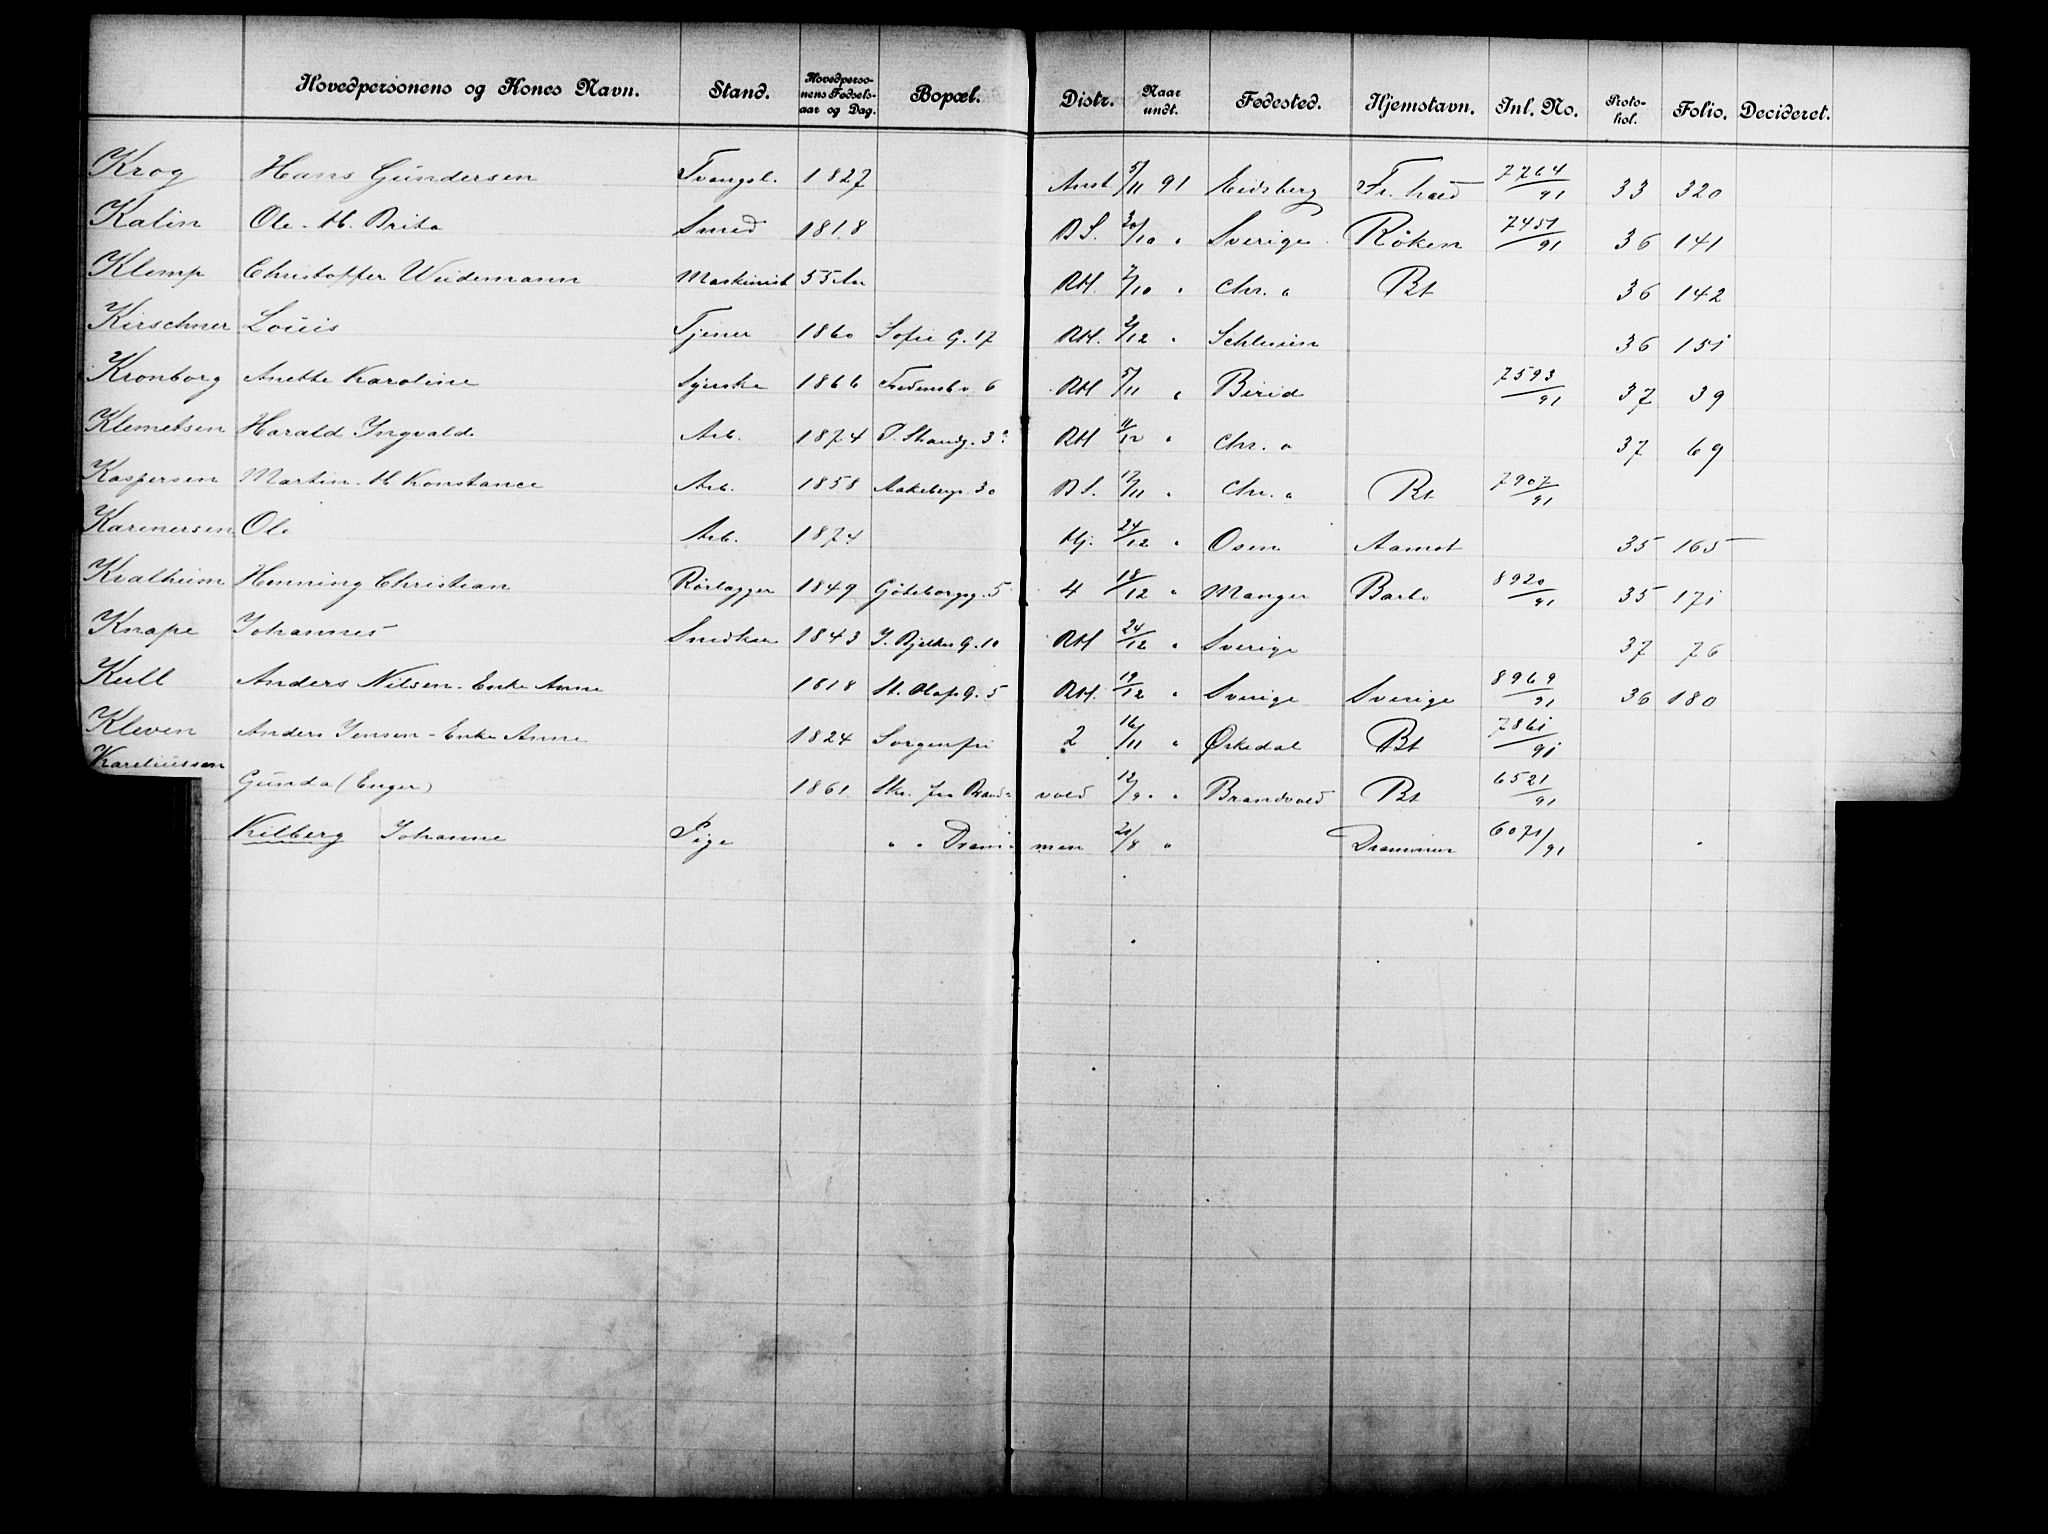 Hovedpersonens og Kones Navn. Stand. Hovedpersonens Fødselsaar og Dag. Bopæl. Distr. Naar undt. Fødested. Hjemstavn. Inl. No. Protokol. Folio. Decideret.
Krog Hans Gundersen Tvangsl. 1827 Anst. 5/11 91 Eidsberg Fr.hald 7764/91 33 320
Kalin Ole. H. Brita Smed 1818 B S. 30/10 " Sverige Röken 7451/91 36 141
Klemp Christoffer Weidemann Maskinist 55 Aar RH. 7/10 " Chr. a Bt 36 142
Kirschner Louis Tjener 1860 Sofie G. 17 RH. 2/12 " 36 151
Kronborg Anette Karoline Syerske 1866 Fredensb.v. 6 RH 5/11 " Birid 7593/91 37 39
Klemetsen Harald Ingvald Arb. 1874 RH 11/12 " Chr. a 37 69
Kaspersen Martin. H. Konstance Arb. 1858 Aakebergv. 30 B S. 17/11 " Chr. a Bt 7907/91
Karenersen Ole Arb. 1874 Hj. 24/12 " Osen Aamot 35 165
Kralheim Henning Christian Rörlægger 1849 Göteborgg. 5 4 18/12 " Manger Barbo 8920/91 35 171
Knape Johannes Snedker 1843 J. Bjelkes G. 10 RH 24/12 " Sverige 37 76
Kull Anders Nilsen. Enke Anne 1818 St. Olafs G. 5 RH. 19/12 " Sverige Sverige 8969/91 36 180
Kleven Anders Jensen - Enke Anne 1824 Sorgenfri 2 16/11 " Ørkedal Bt 7861/91
Kareliussen Gunda (Enger) 1861 Skr. fra Brandvold 12/9 " Brandvold Bt 6521/91
Kilberg Johanne Pige " " Drammen 21/8 " Drammen 6071/91